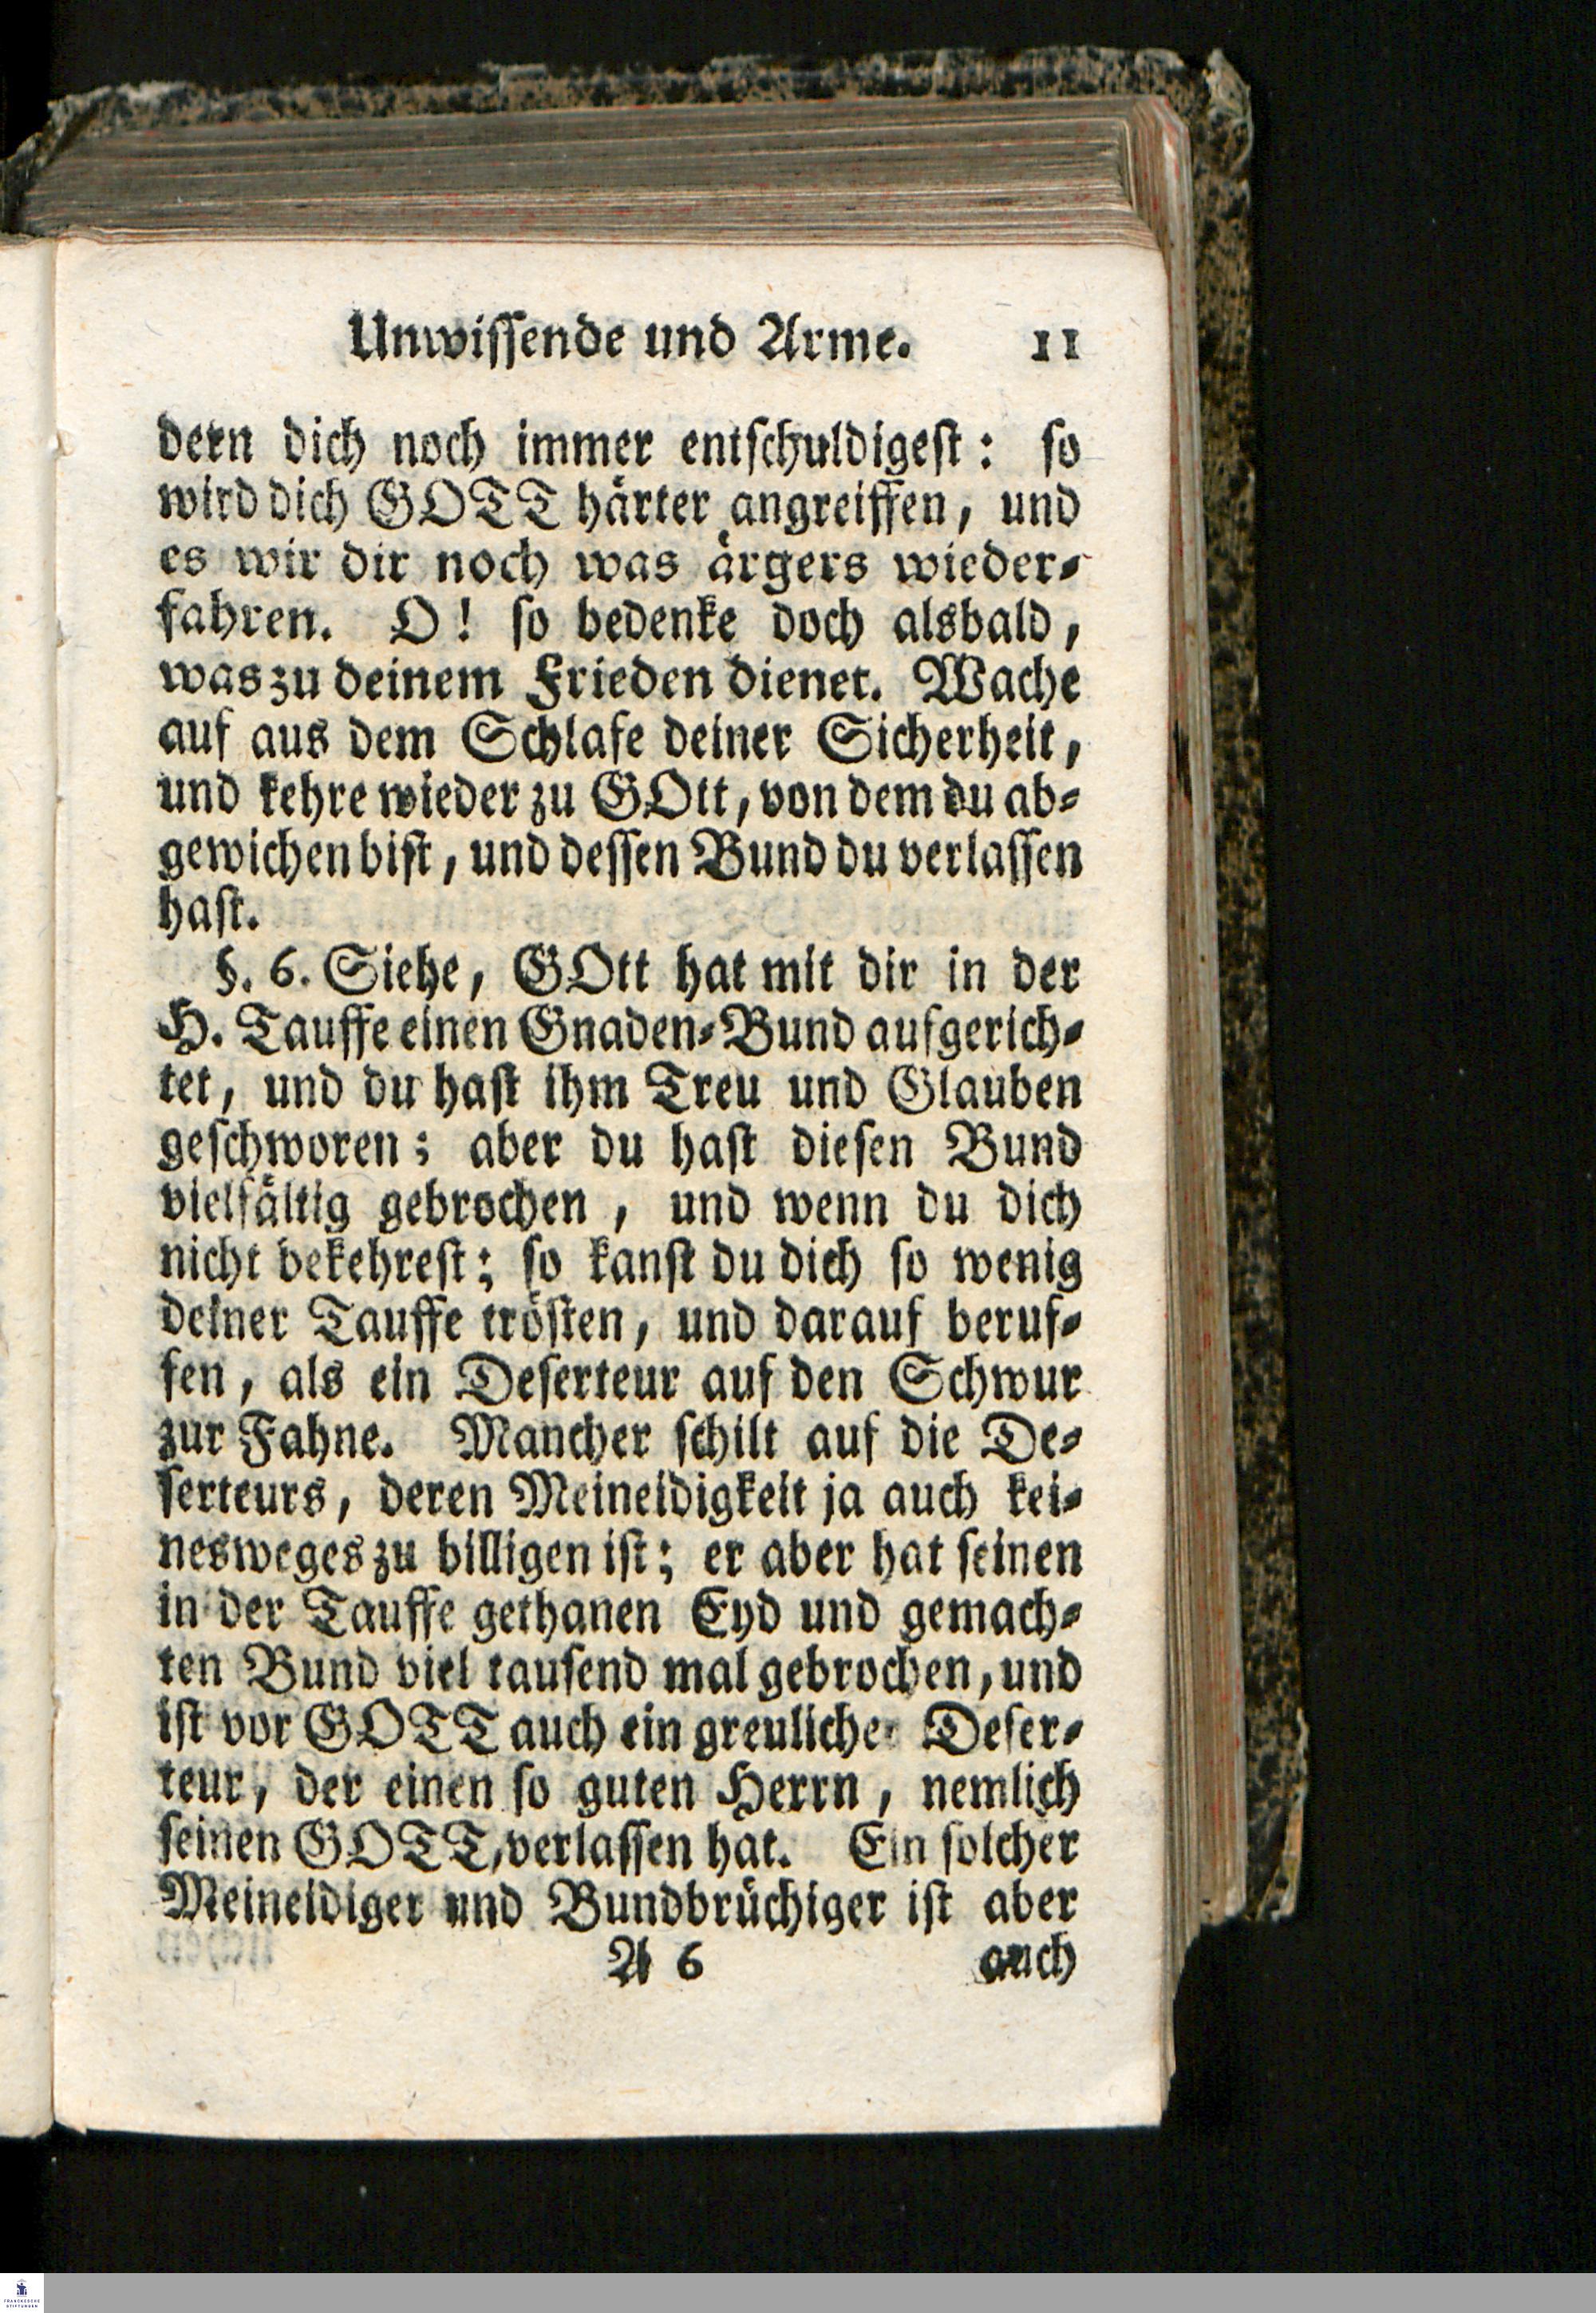 Unwissende und Arme. 11
dern dich noch immer entschuldigest: so
wird dich GOTT härter angreiffen, und
es wir dir noch was ärgers wieder-
fahren. O! so bedenke doch alsbald,
was zu deinem Frieden dienet. Wache
auf aus dem Schlafe deiner Sicherheit,
und kehre wieder zu GOtt, von dem du ab-
gewichen bist, und dessen Bund du verlassen
hast.
§. 6. Siehe, GOtt hat mit dir in der
H. Tauffe einen Gnaden-Bund aufgerich-
tet, und du hast ihm Treu und Glauben
geschworen; aber du hast diesen Bund
vielfältig gebrochen, und wenn du dich
nicht bekehrest; so kanst du dich so wenig
deiner Tauffe trösten, und darauf beruf-
fen, als ein Deserteur auf den Schwur
zur Fahne. Mancher schilt auf die De-
serteurs, deren Meineidigkeit ja auch kei-
nesweges zu billigen ist; er aber hat seinen
in der Tauffe gethanen Eyd und gemach-
ten Bund viel tausend mal gebrochen, und
ist vor GOTT auch ein greulicher Deser-
teur, der einen so guten Herrn, nemlich
seinen GOTT, verlassen hat. Ein solcher
Meineidiger und Bundbrüchiger ist aber
A 6 auch
FRANCKESCHE
STIFTUNGEN